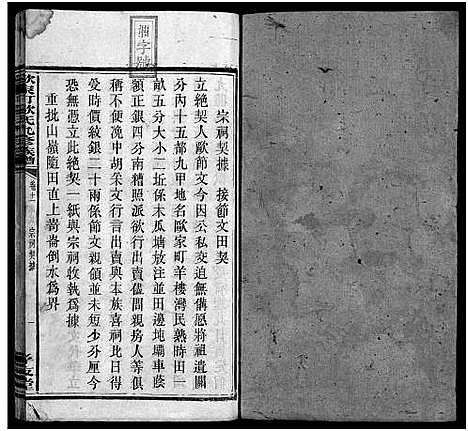 宗祠契據　接節文田契
立絶契人歐節文今因公私變迫無備愿將祖遺關
分丙十五都九甲地名歐家町羊樓灣民熟時田一
畝五分大小二坵係木瓜塘放注並田邊地壩車蔭
額正銀四分南糟照派欲行出賣儘問親房人等俱
稱不便浼中胡采文行言出賣與本族喜祠北日得
受時價紋銀二十兩係節文親領並未短少分厘今
恐無憑立此一紙與宗祠收執爲據
重批山嶺隨田直上崀崙倒水爲界
卷十一
宗祠契據
一